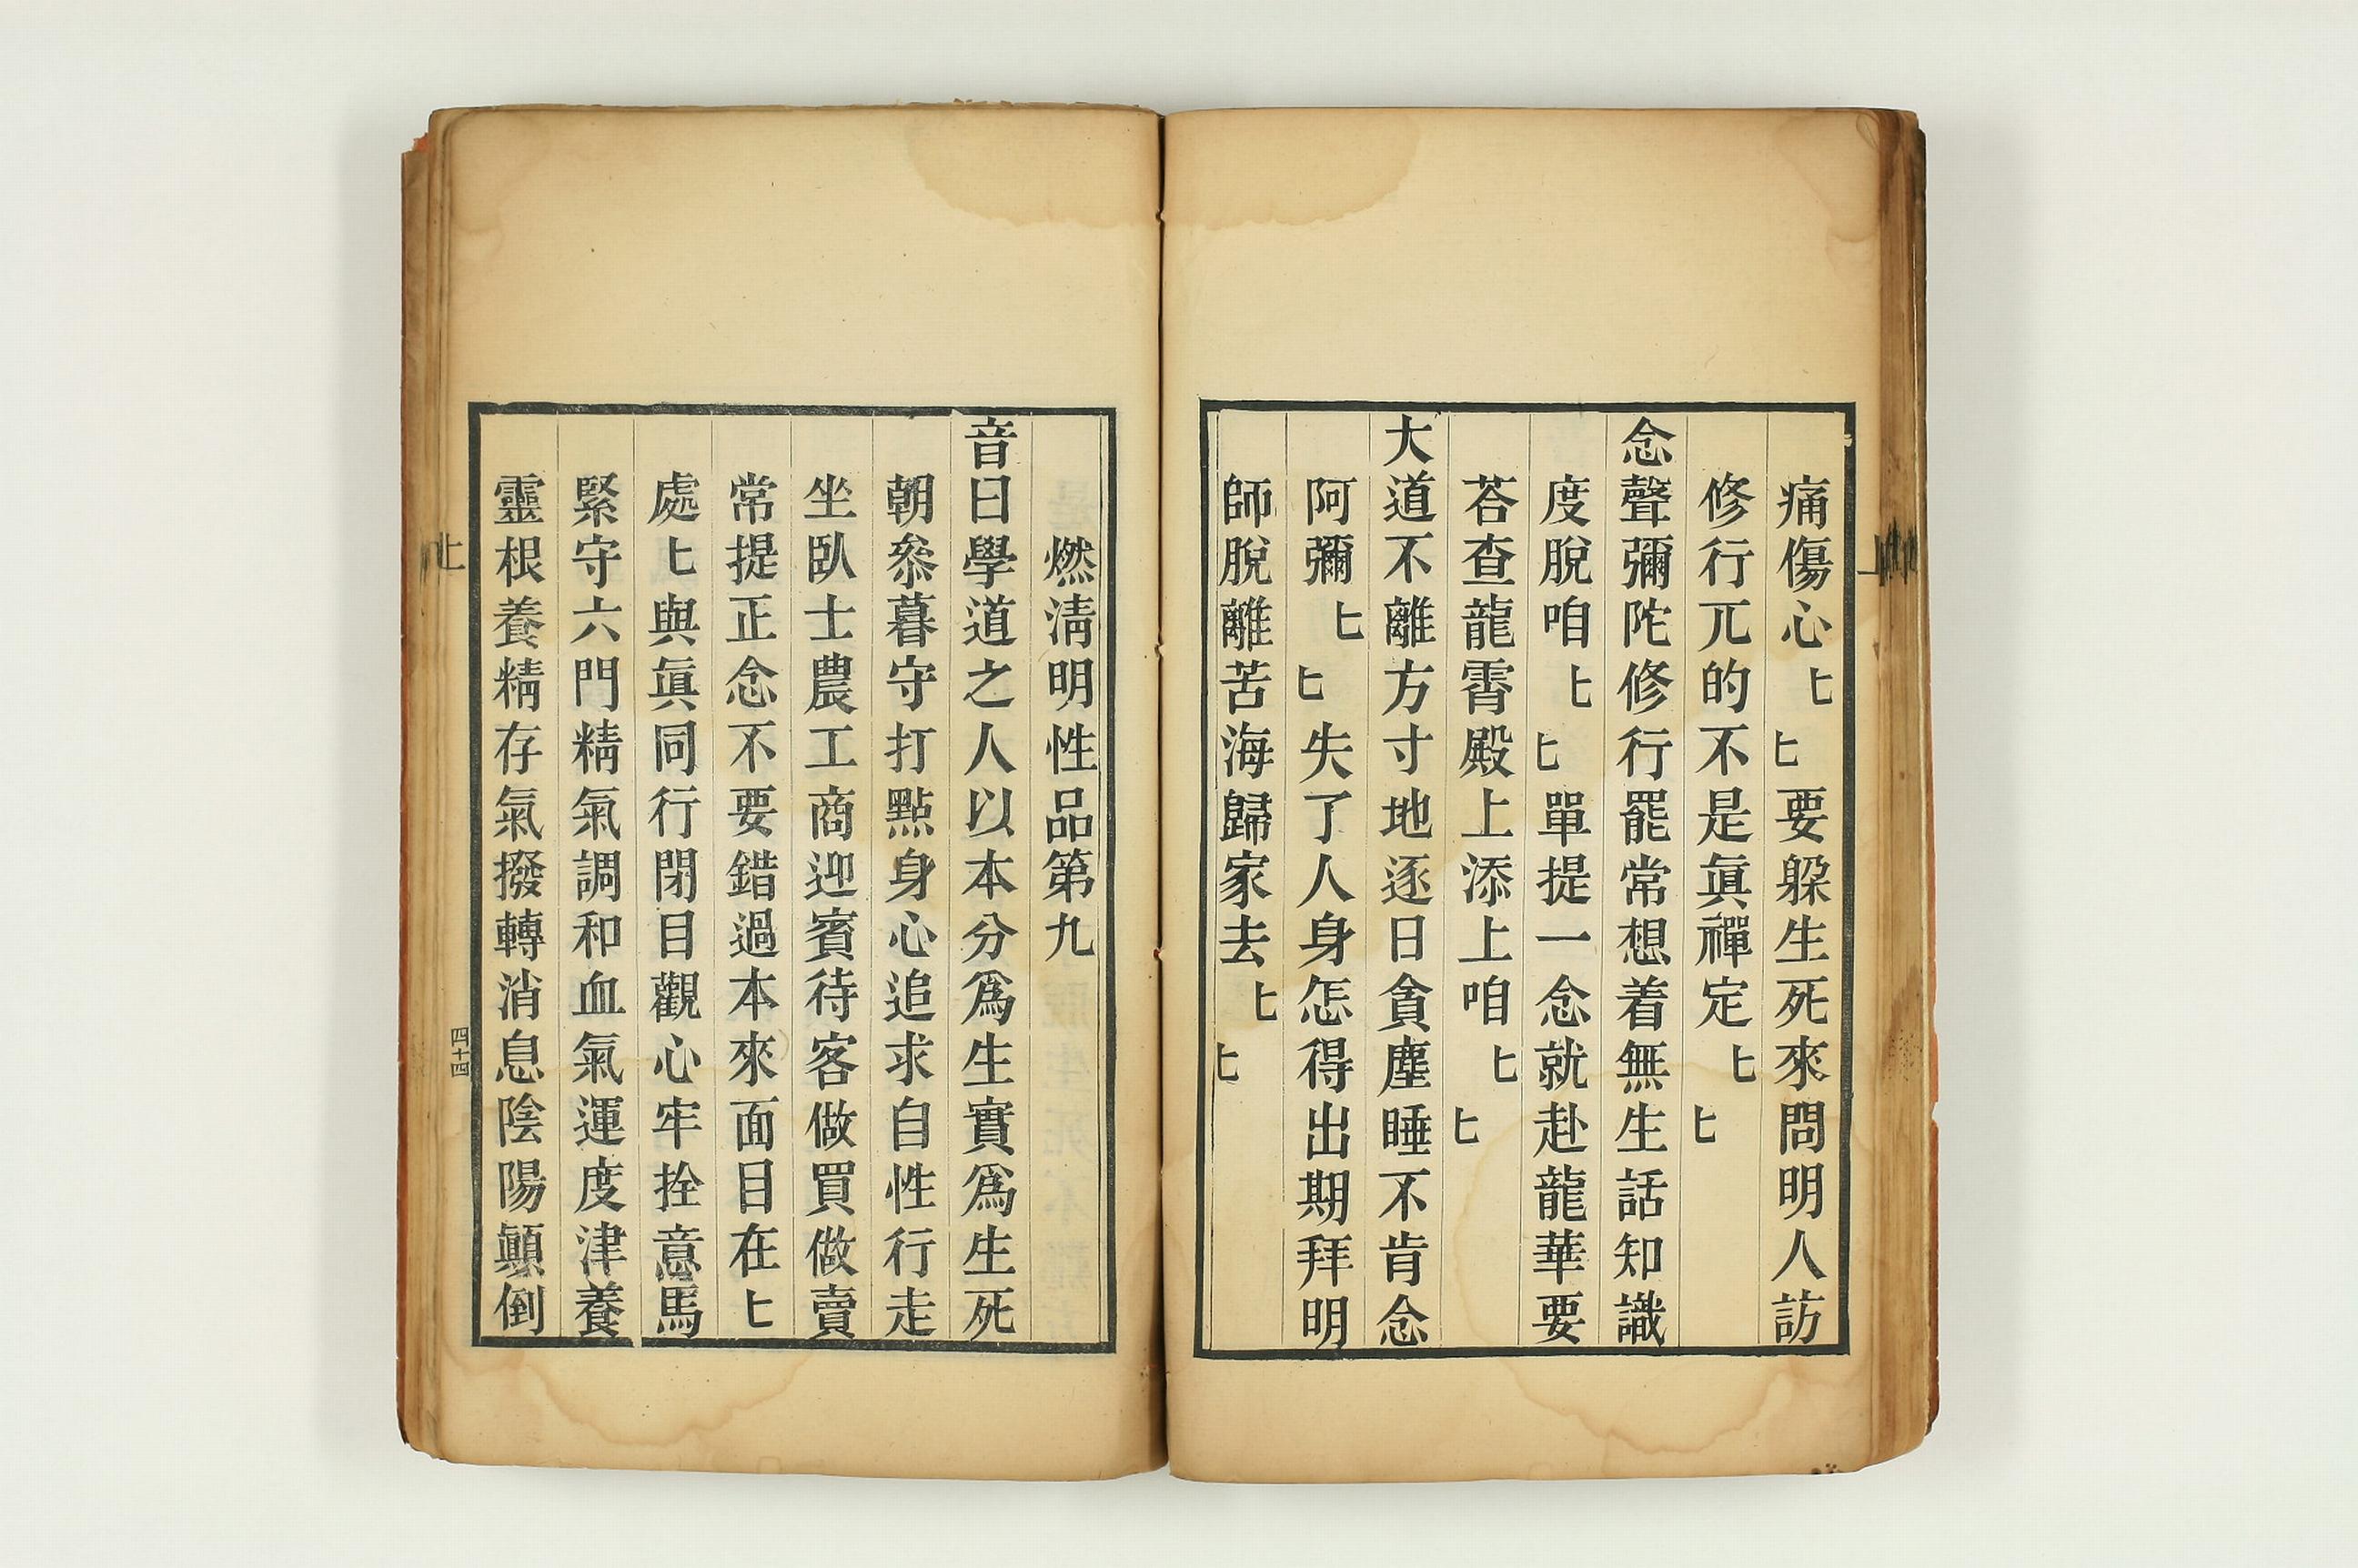 痛傷心〻〻要躱生死來問明人訪
修行兀的不是眞禪定〻〻
念聲彌陀修行罷常想着無生話知識
度脫咱〻〻單提一念就赴龍華要
荅查龍霄殿上添上咱〻〻
大道不離方寸地逐日貪塵睡不肯念
阿彌〻〻失了人身怎得出期拜明
師脫離苦海歸家去〻〻
燃淸明性品第九
音曰學道之人以本分爲生實爲生死
朝叅暮守打點身心追求自性行走
坐臥士農工商迎賓待客做買做賣
常提正念不要錯過本來面目在〻
處〻與眞同行閉目觀心牢拴意馬
緊守六門精氣調和血氣運度津養
靈根養精存氣撥轉消息陰陽顚倒
上
四十四